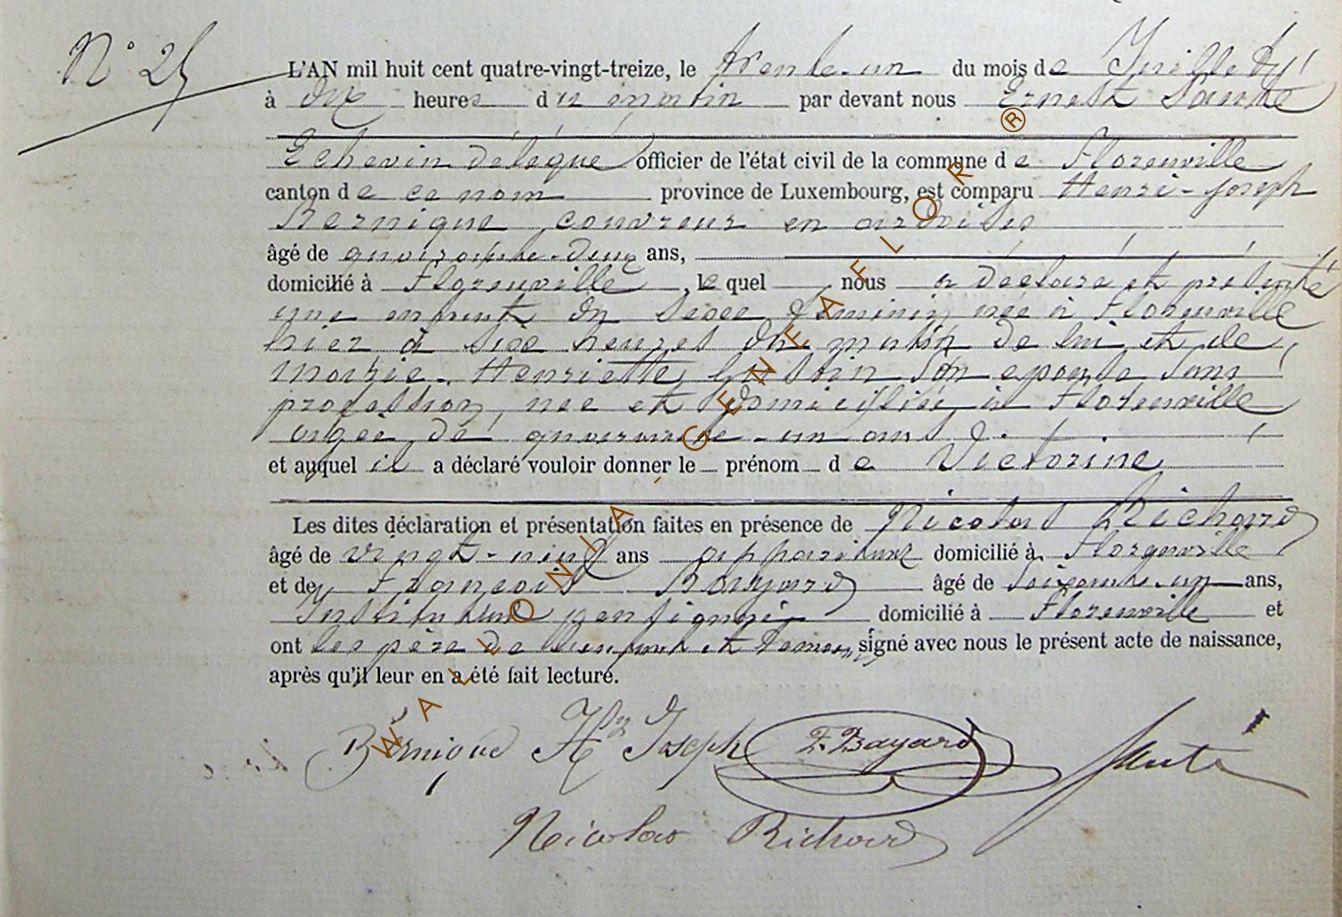 N° 25
L'AN mil huit cent quatre-vingt-treize, le trente-un du mois de Juillet
à dix heures du matin par devant nous Ernest Santé
Echevin délégué officier de l'état civil de la commune de Florenville
canton de ce nom province de Luxembourg, est comparu Henri-Joseph
Bernique, couvreur en ardoises
âgé de quarante-deux ans,
domicilié à Florenville, le quel nous a déclaré et présenté
une enfant du sexe féminin née à Florenville
hier à six heures du matin de lui et de
Marie-Henriette son épouse sans
profession, née et domiciliée à Florenville
âgée de quarante-un ans
et auquel il a déclaré vouloir donner le prénom de Victorine
Les dites déclaration et présentation faites en présence de Nicolas Richard
âgé de vingt-neuf ans appariteur domicilié à Florenville
et de François Bayard âgé de soixante-un ans,
Instituteur pensionné domicilié à Florenville et
ont les père de l'enfant et témoins signé avec nous le présent acte de naissance,
après qu'il leur en a été fait lecture.
Bernique Hri Joseph F. Bayard Santé
Nicolas Richard
WALLONIA - GENEAFLOR ®